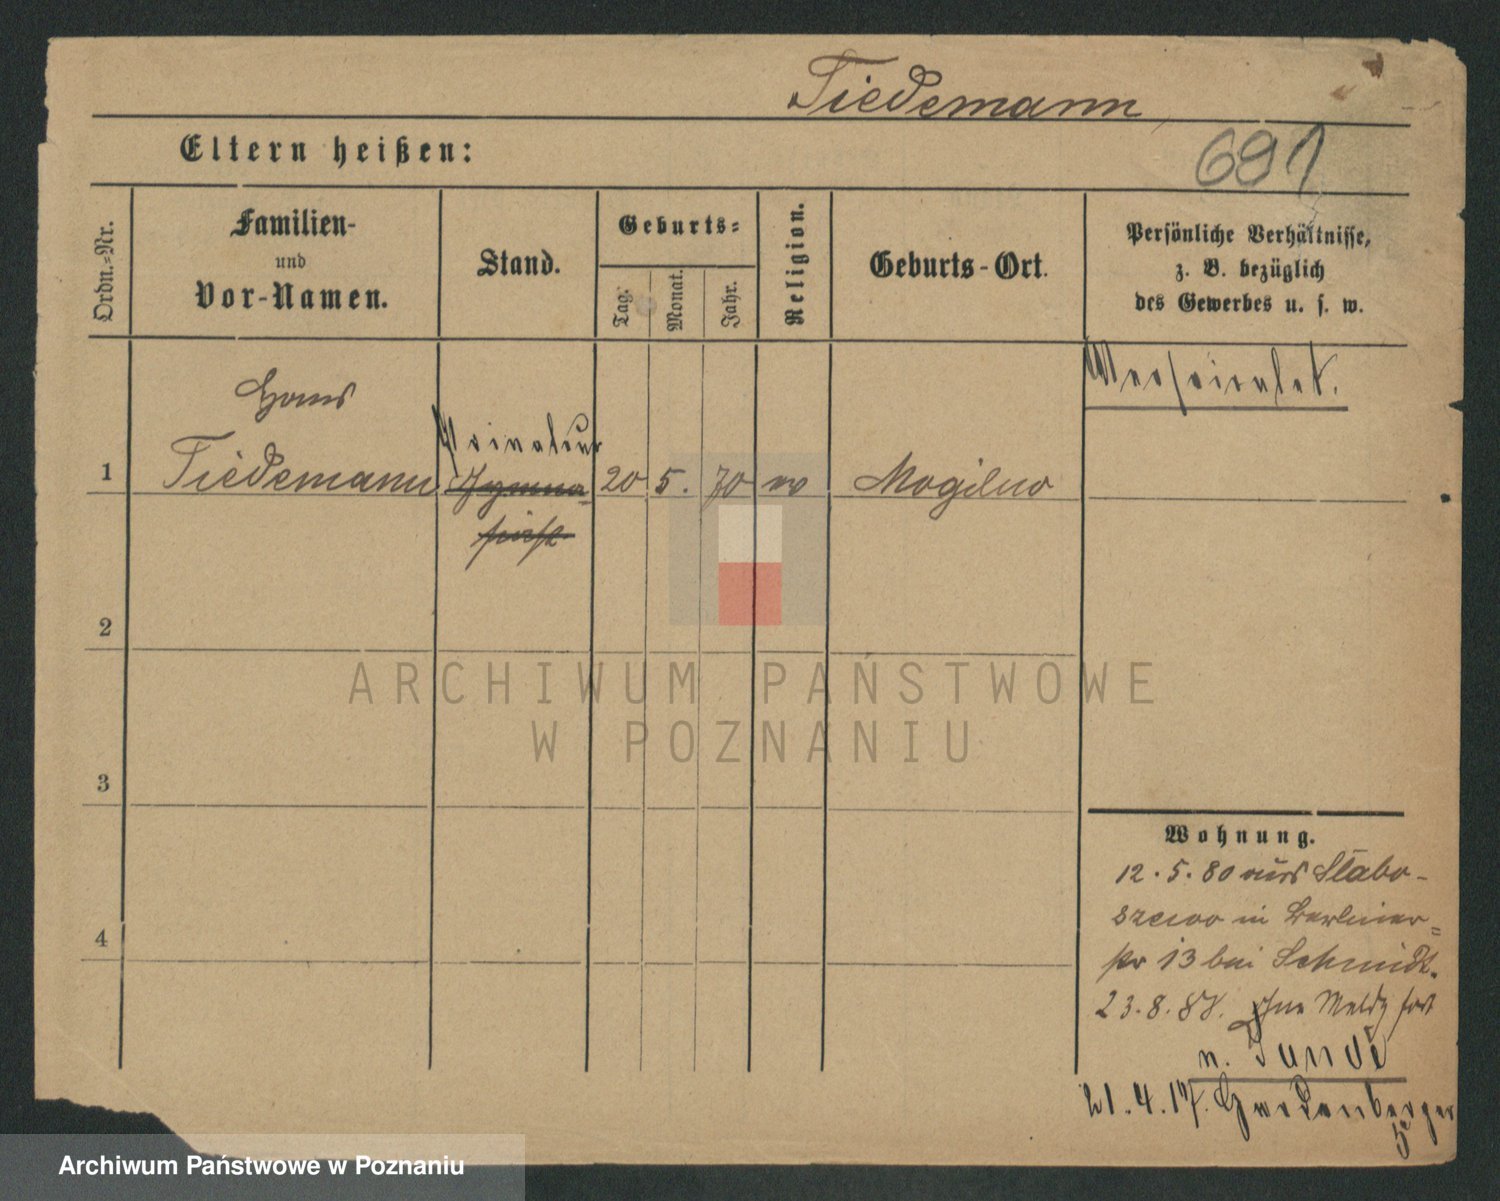 Tiedemann
691
Eltern heißen:
Ordn.-Nr.
Familien-
und
Vor-Namen.
Stand.
Geburts-
Tag.
Monat.
Jahr.
Religion.
Geburts-Ort.
Persönliche Verhältnisse,
z. B. bezüglich
des Gewerbes u. s. w.
Hans
1 Tiedemann 20 5. 70 Mogilno
2
3
4
Wohnung.
12. 5. 80 aus Stabo-
szewo in Berliner-
str 13 bei Schmidt.
23. 8. 87. ohne Meldg fort
n.
21. 4. 17.
ARCHIWUM PAŃSTWOWE
W POZNANIU
Archiwum Państwowe w Poznaniu